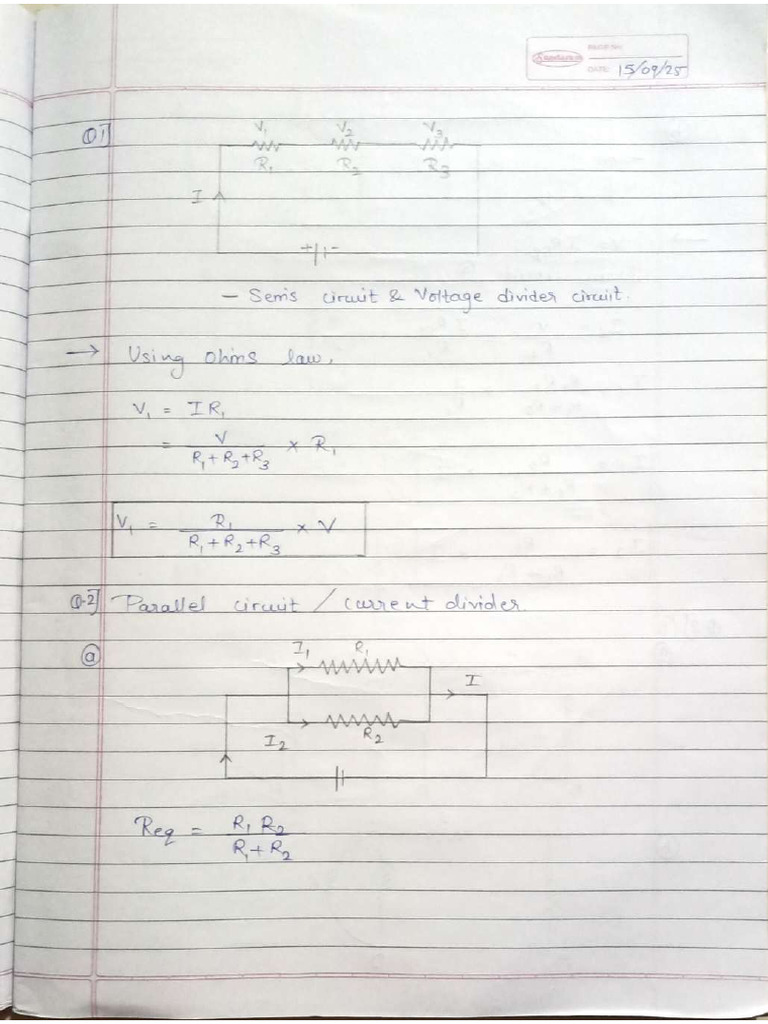 PAGE NO:
DATE: 15/09/25
Q1]
V₁ V₂ V₃
R₁ R₂ R₃
I
+ -
- Semis circuit & Voltage divider circuit.
→ Using Ohms law,
V₁ = I R₁
= V / (R₁ + R₂ + R₃) × R₁
V₁ = R₁ / (R₁ + R₂ + R₃) × V
Q-2] Parallel circuit / current divider
ⓐ I₁ R₁
I
I₂ R₂
Req = R₁ R₂ / (R₁ + R₂)